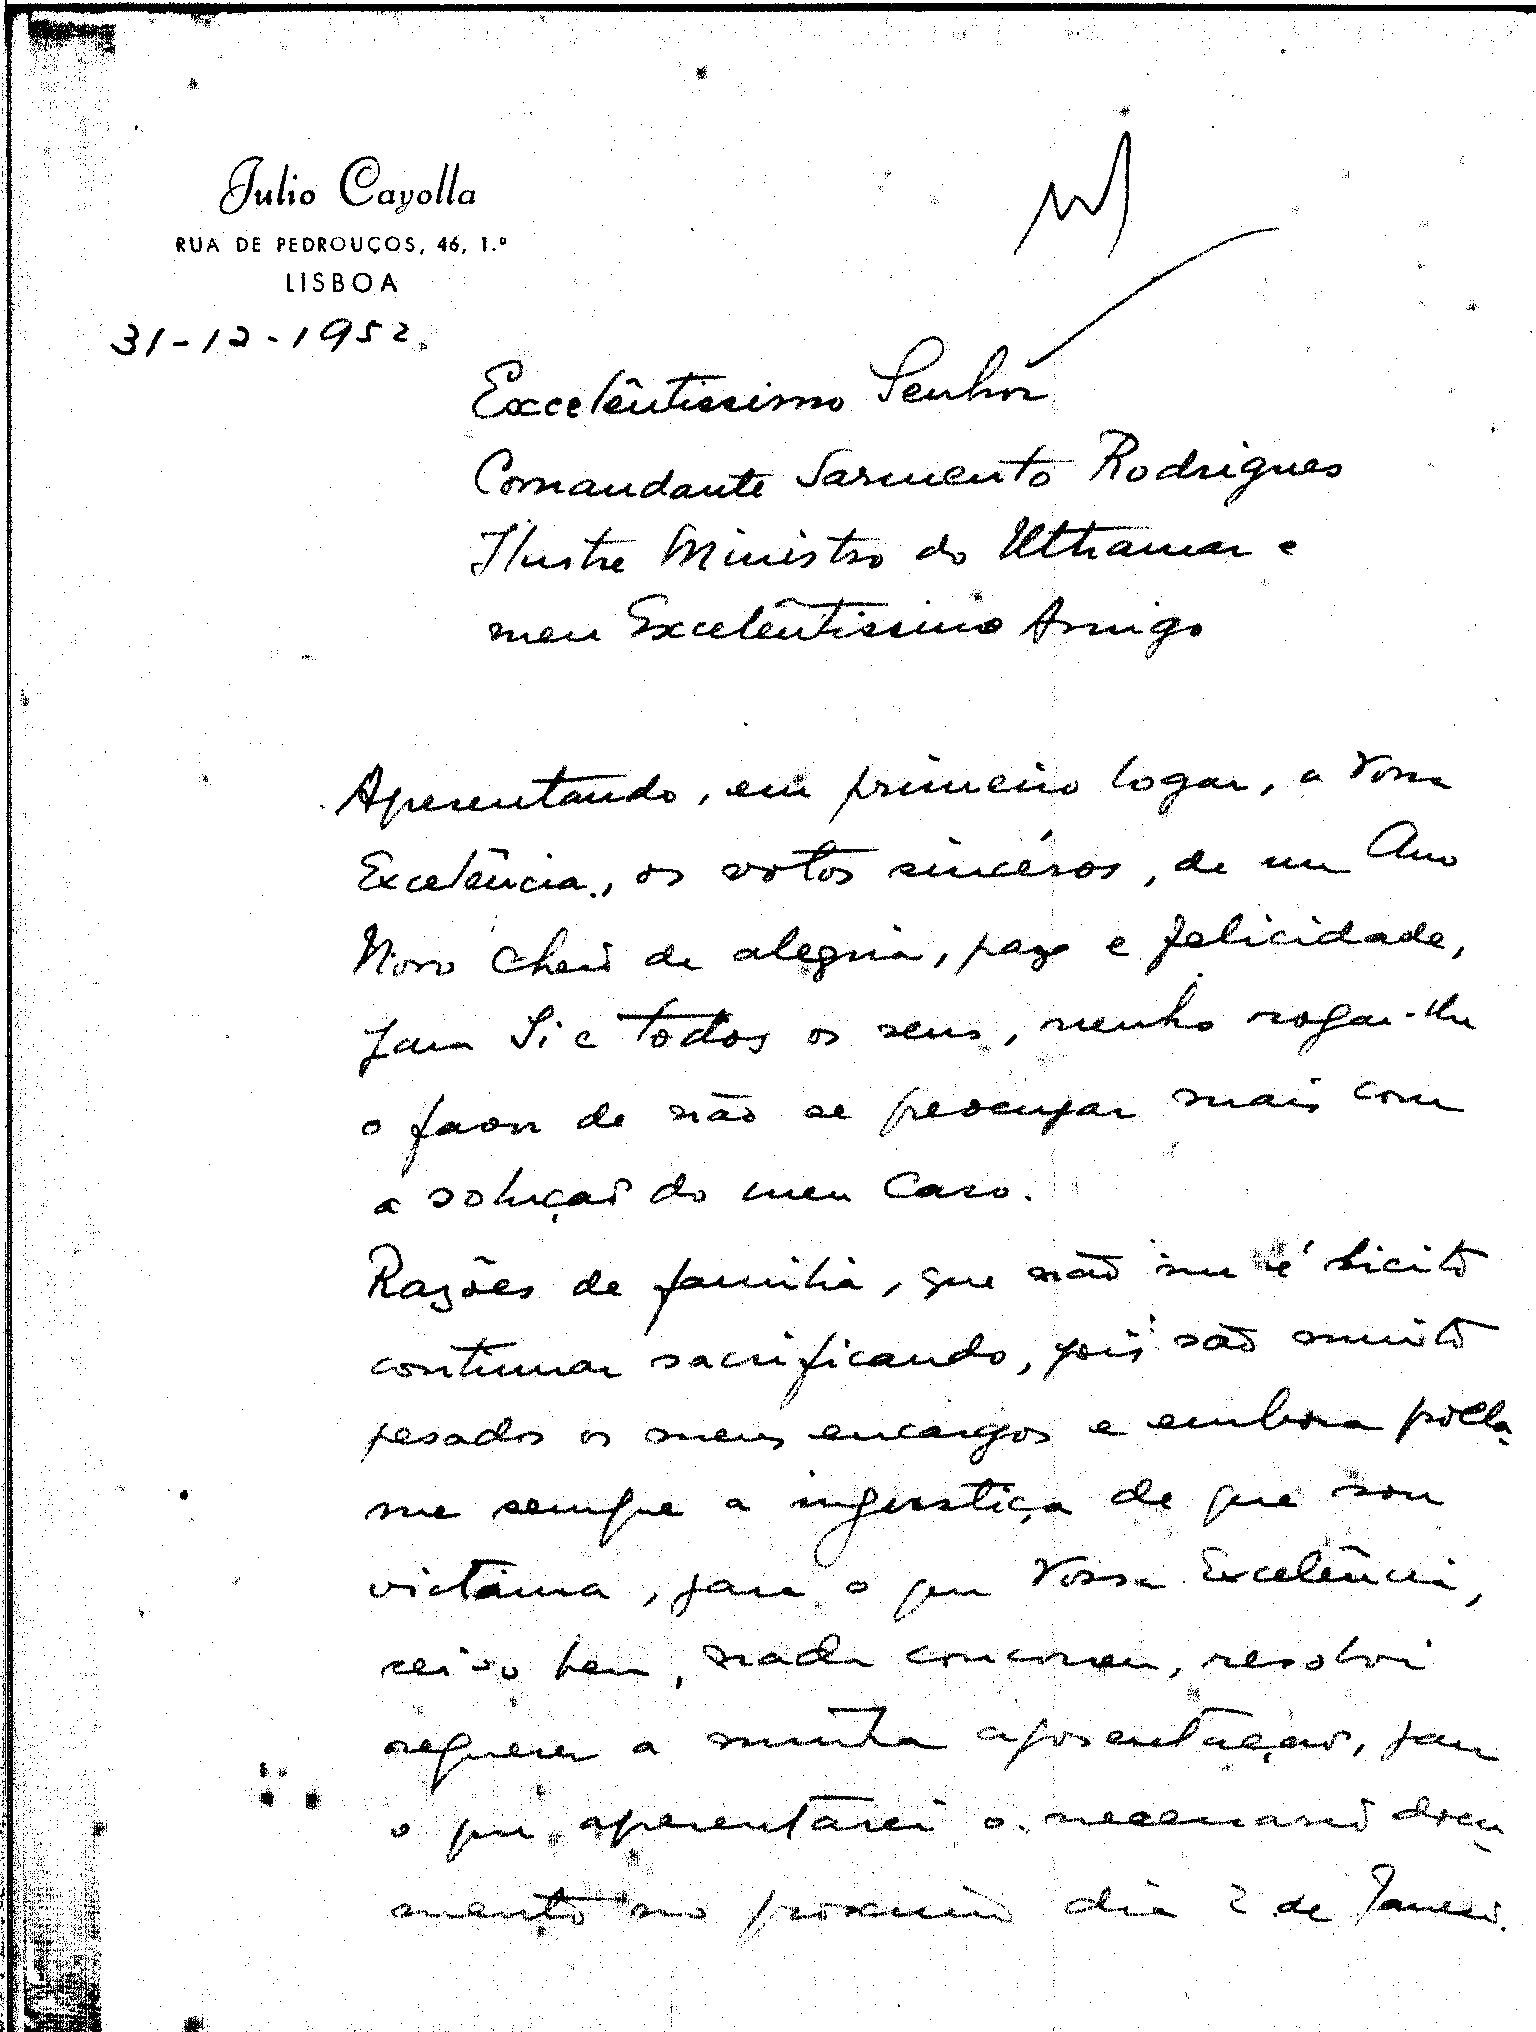 Julio Cayolla
RUA DE PEDROUÇOS, 46, 1.º
LISBOA
31-12-1952.
Excelêntissimo Senhor
Comandante Sarmento Rodrigues
Ilustre Ministro do Ultramar e
meu Excelêntissimo Amigo
Apresentando, em primeiro logar, a Vossa
Excelência, os votos sincéros, de um Ano
Novo cheio de alegria, paz e felicidade,
para Si e todos os seus, venho rogar-lhe
o favor de não se preocupar mais com
a solução do meu caso.
Razões de familia, que não me é licito
continuar sacrificando, pois são muito
pesados os meus encargos e embora
me sempre a injustiça de que sou
victima, para o que Vossa Excelência,
sei-o bem, nada concorreu, resolvi
requerer a minha aposentação, para
o que apresentarei o necessario docu-
mento no proximo dia 2 de Janeiro.